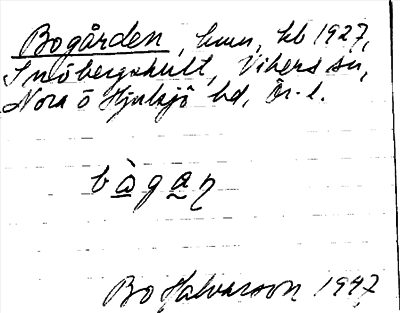 Bogården, hmn, kb 1927,
Snöbergshult, Vikers sn,
Nora o Hjulsjö bd, Ör. l.
bàgaɳ
Bo Halvarson 1947